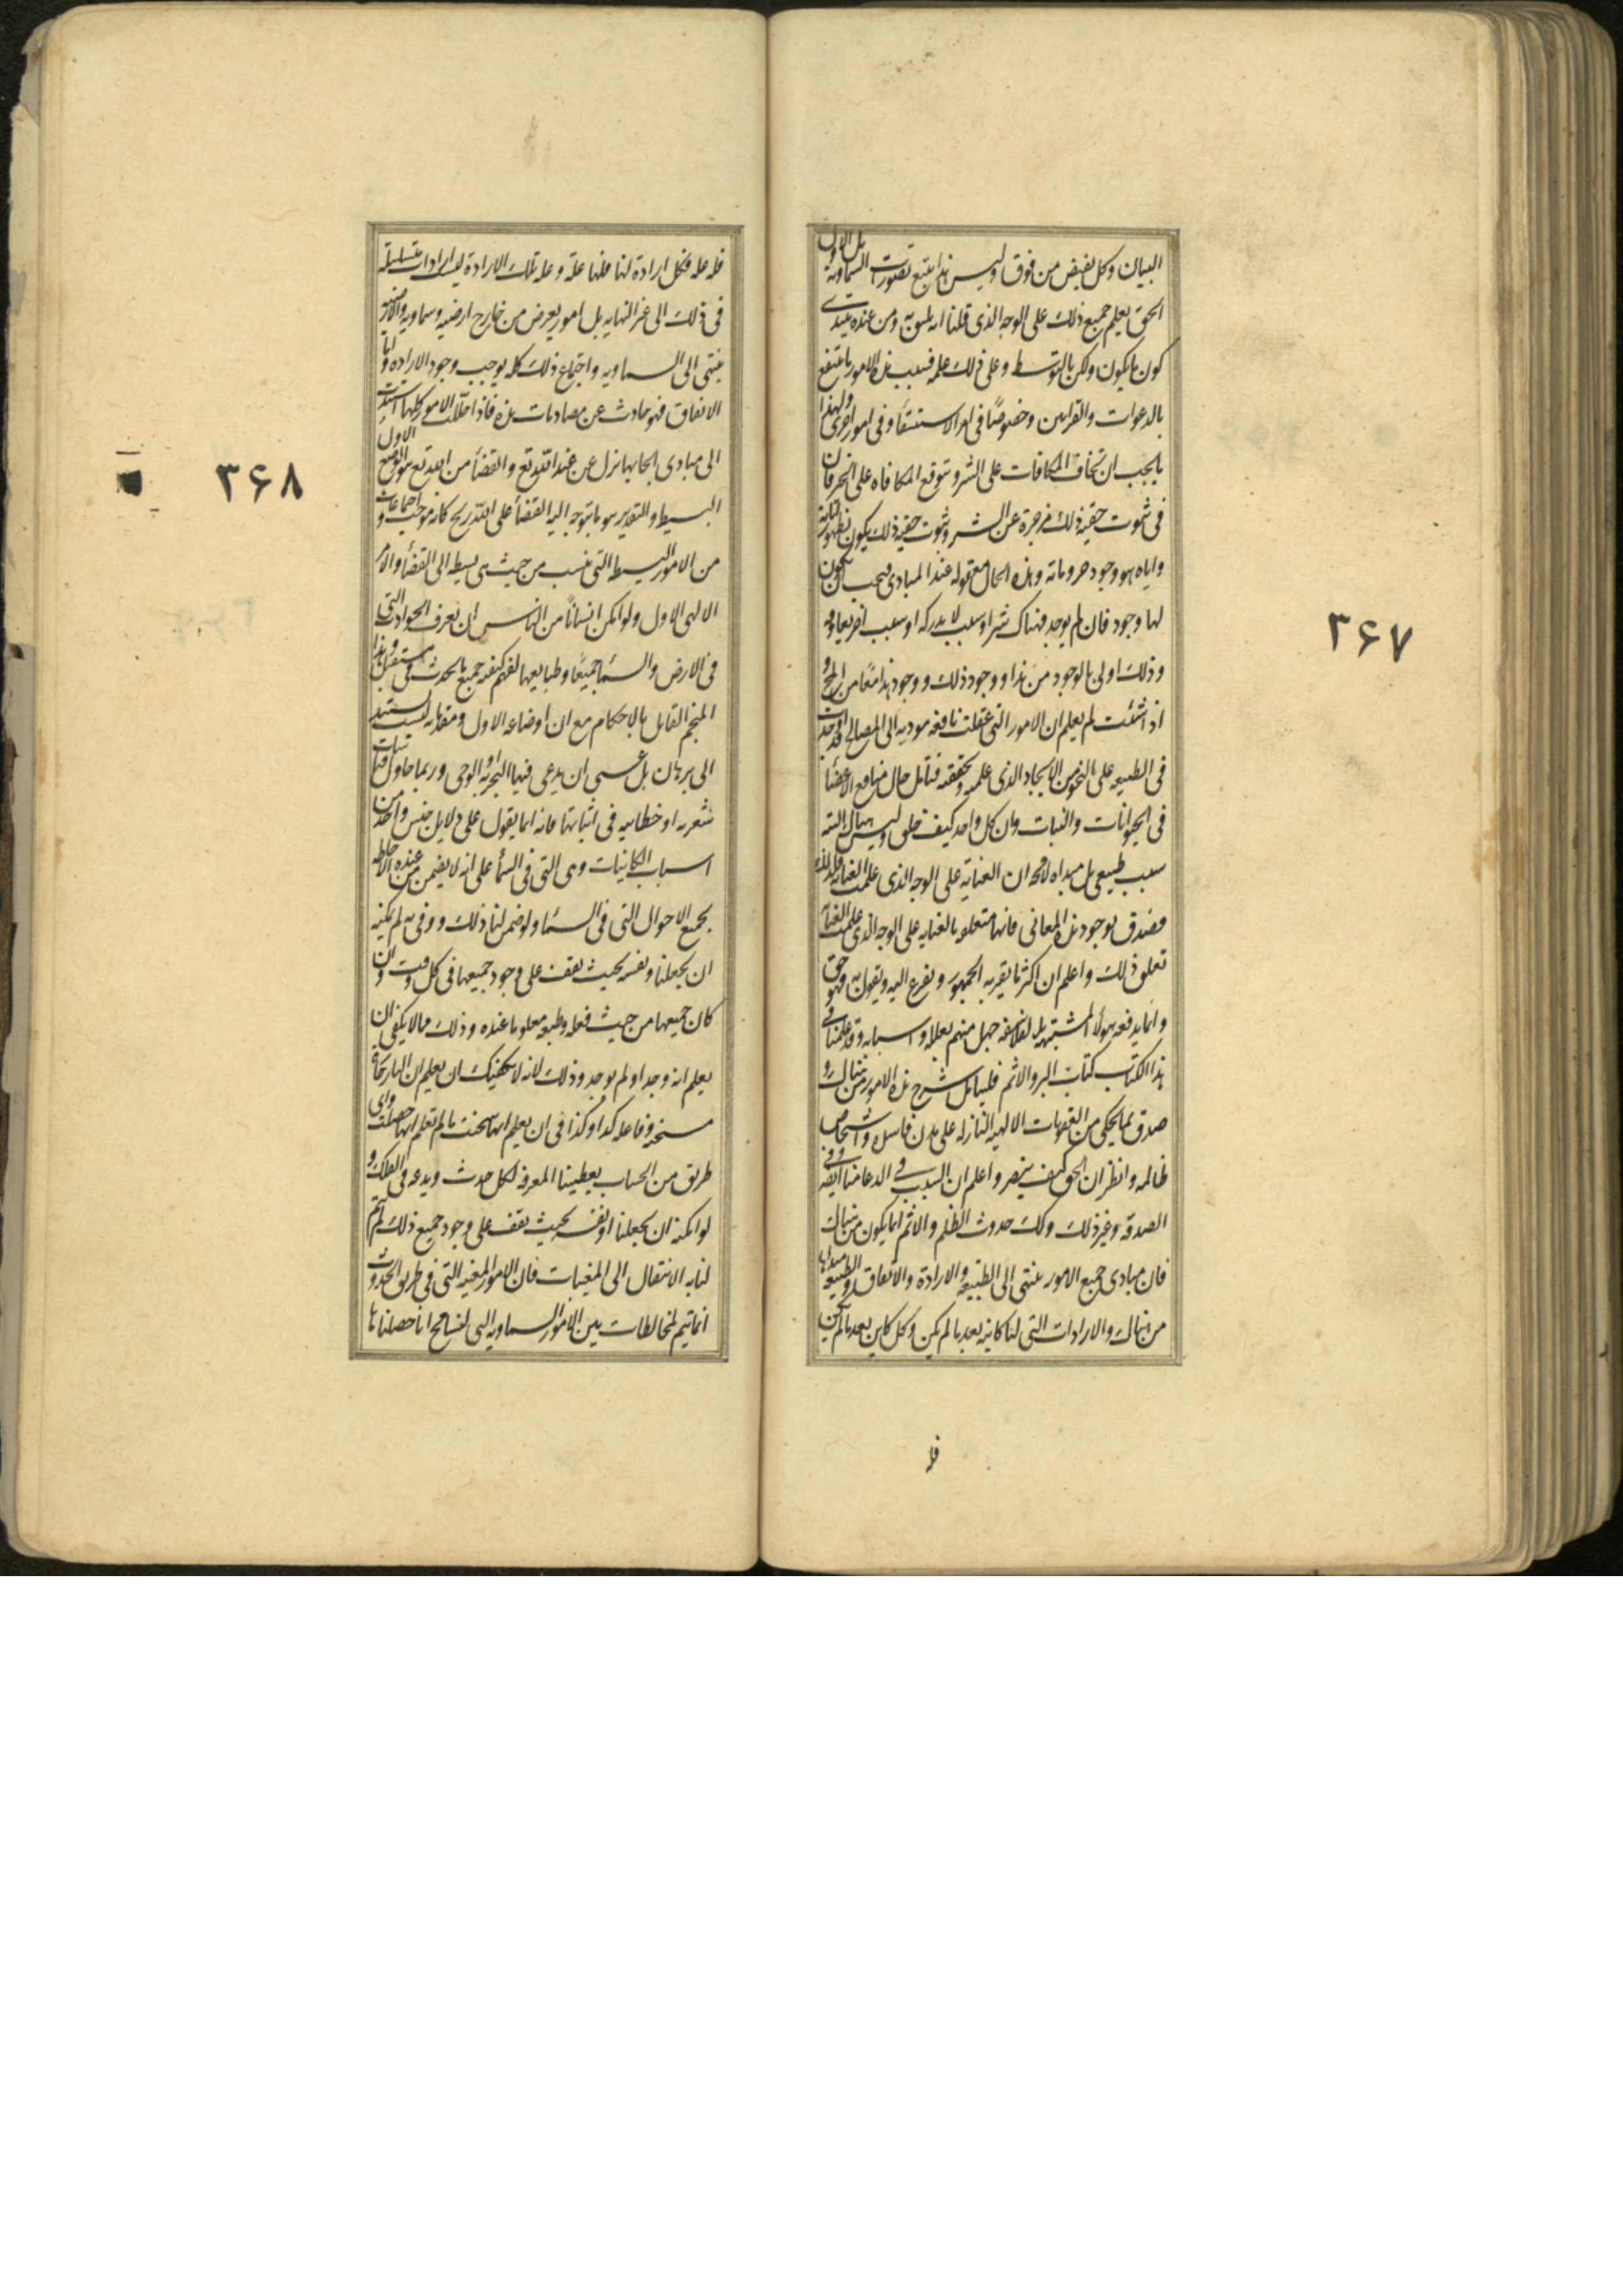 البيان وكل يفيض من فوق وليس هذا يتبع تصورات السماوية بل الاول
الحق يعلم جميع ذلك على الوجه الذى قلنا انه يليق به ومن عنده يبتدى
كون ما يكون ولكن بالتوسط وعلى ذلك علمه فبسبب هذه الامور ما ينتفع
بالدعوات والقرابين وخصوصًا فى امر الاستسقاء وفى امور اخرى ولهذا
ما يجب ان تخاف المكافات على الشر ويتوقع المكافاه على الخير فان
فى ثبوت حقية ذلك مزجرة عن الشر وثبوت حقية ذلك يكون بظهور اياته
واياته هو وجود جزوياته وهذه الحال معقوله عند المبادى فيجب ان يكون
لها وجود فان لم يوجد فهناك شر او سبب لا ندركه او سبب اخر يعاوقه
وذلك اولى بالوجود من هذا ووجود ذلك ووجود هذا معًا من المح و
اذا شئت لم يعلم ان الامور التى عقلت نافعه موديه الى المصالح قد اوجدت
فى الطبيعه على النحو من الايجاد الذى علمته وتحققته فتامل حال منافع الاعضا
فى الحيوانات والنبات وان كل واحد كيف خلق وليس هناك البته
سبب طبيعى بل مبداه لا محه ان العنايه على الوجه الذى علمت العنايه فكذلك
فصدق بوجود هذه المعانى فانها متعلقه بالعنايه على الوجه الذى علمت العنايه
تعلق ذلك واعلم ان اكثر ما يقربه الجمهور ويفزع اليه ويقول به فهو حق
وانما يدفعه هولا المتشبهه بالفلاسفه جهل منهم بعلله واسبابه وقد علمنا فى
هذا الكتاب كتاب البر والاثم فليتامل شرح هذه الامور من هناك و
صدق بما يحكى من العقوبات الالهيه النازله على مدن فاسده واشخاص
ظالمه وانظر ان الحق كيف ينصر واعلم ان السبب فى الدعا منا ايضه وفى
الصدقه وغير ذلك وكك حدوث الظلم والاثم انما يكون من هناك
فان مبادى جميع الامور ينتهى الى الطبيعه والارادة والاتفاق والطبيعه مبداها
من هناك والارادات التى لنا كاينه بعد ما لم يكن وكل كاين بعد ما لم يكن
فله
۳۶۷
فله عله فكل ارادة لنا فلها علة وعله تلك الارادة ليست ارادات متسلسلة
فى ذلك الى غير النهايه بل امور يعرض من خارج ارضيه وسماويه والارضيه
ينتهى الى السماويه واجتماع ذلك كله يوجب وجود الاراده واما
الاتفاق فهو حادث عن مصادمات هذه فاذا حللت الامور كلها استندت
الى مبادى ايجابها ينزل من عند الله تع والقضا من الله تع هو الوضع الاول
البسيط والتقدير هو ما يتوجه اليه القضا على التدريج كانه موجب اجتماعات
من الامور البسيطه التى ينسب من حيث هى بسيطه الى القضا والامر
الالهى الاول ولو امكن انسانًا من الناس ان يعرف الحوادث التى
فى الارض والسما جميعًا وطبايعها لفهم كيفيه جميع ما يحدث فى المستقبل وهذا
المنجم القايل بالاحكام مع ان اوضاعه الاول ومقدماته ليست تستند
الى برهان بل عسى ان يدعى فيها التجربه او الوحى وربما حاول قياسات
شعريه او خطابيه فى اثباتها فانه انما يقول على دلايل جنس واحد من
اسباب الكاينات وهى التى فى السما على انه لا يضمن من عنده الاحاطه
بجميع الاحوال التى فى السما ولو ضمن لنا ذلك ووفى به لم يمكنه
ان يجعلنا ونفسه بحيث يقف على وجود جميعها فى كل وقت وان
كان جميعها من حيث فعله وطبعه معلوما عنده وذلك مما لا يكفى ان
يعلم انه وجد او لم يوجد وذلك لانه لا يكفيك ان يعلم ان النار حارة
مسخنه وفاعله كذا وكذا فى ان يعلم انها سخنت ما لم تعلم انها حصلت واى
طريق من الحساب يعطينا المعرفه لكل حدث وبدعه فى الفلك و
لو امكنه ان يجعلنا ونفسه بحيث يقف على وجود جميع ذلك لم يتم
لنا به الانتقال الى المغيبات فان الامور المغيبه التى فى طريق الحدوث
انما يتم لمخالطات بين الامور السماويه التى لنسامح انا حصلناها
۳۶۸